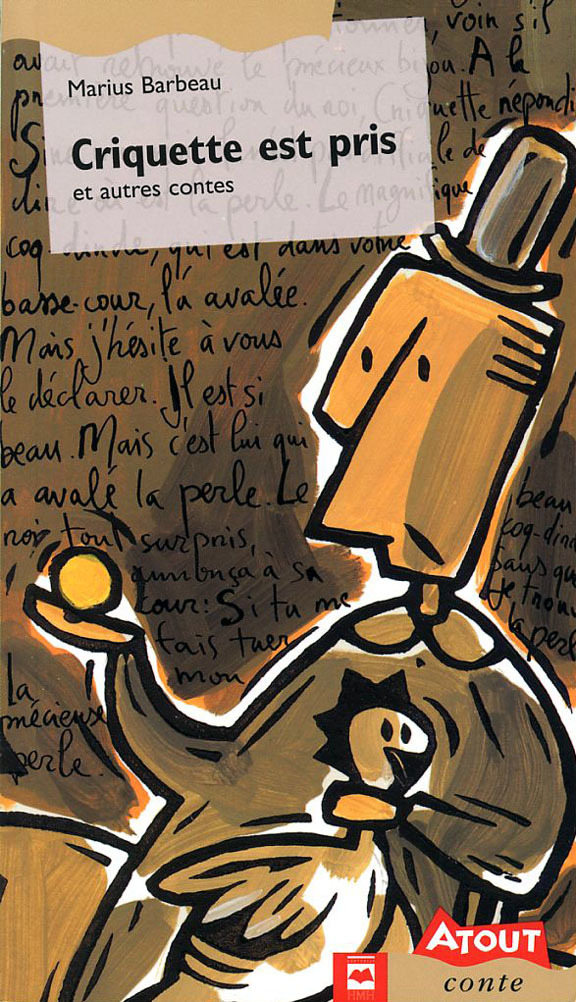 Marius Barbeau
Criquette est pris
et autres contes
voin s'il
avait retrouvé le précieux bijou. A la
première question du roi, Criquette répondi
Si de
dire où est la perle. Le magnifique
coq dinde, qui est dans votre
basse-cour, l'a avalée.
Mais j'hésite à vous
le déclarer. Il est si
beau. Mais c'est lui qui
a avalé la perle. Le
roi tout surpris,
annonça à sa
cour: Si tu me
fais tuer
mon
beau
coq-dind
Sans qu
je trouv
la perl
La
précieuse
perle.
ATOUT
conte
HMH